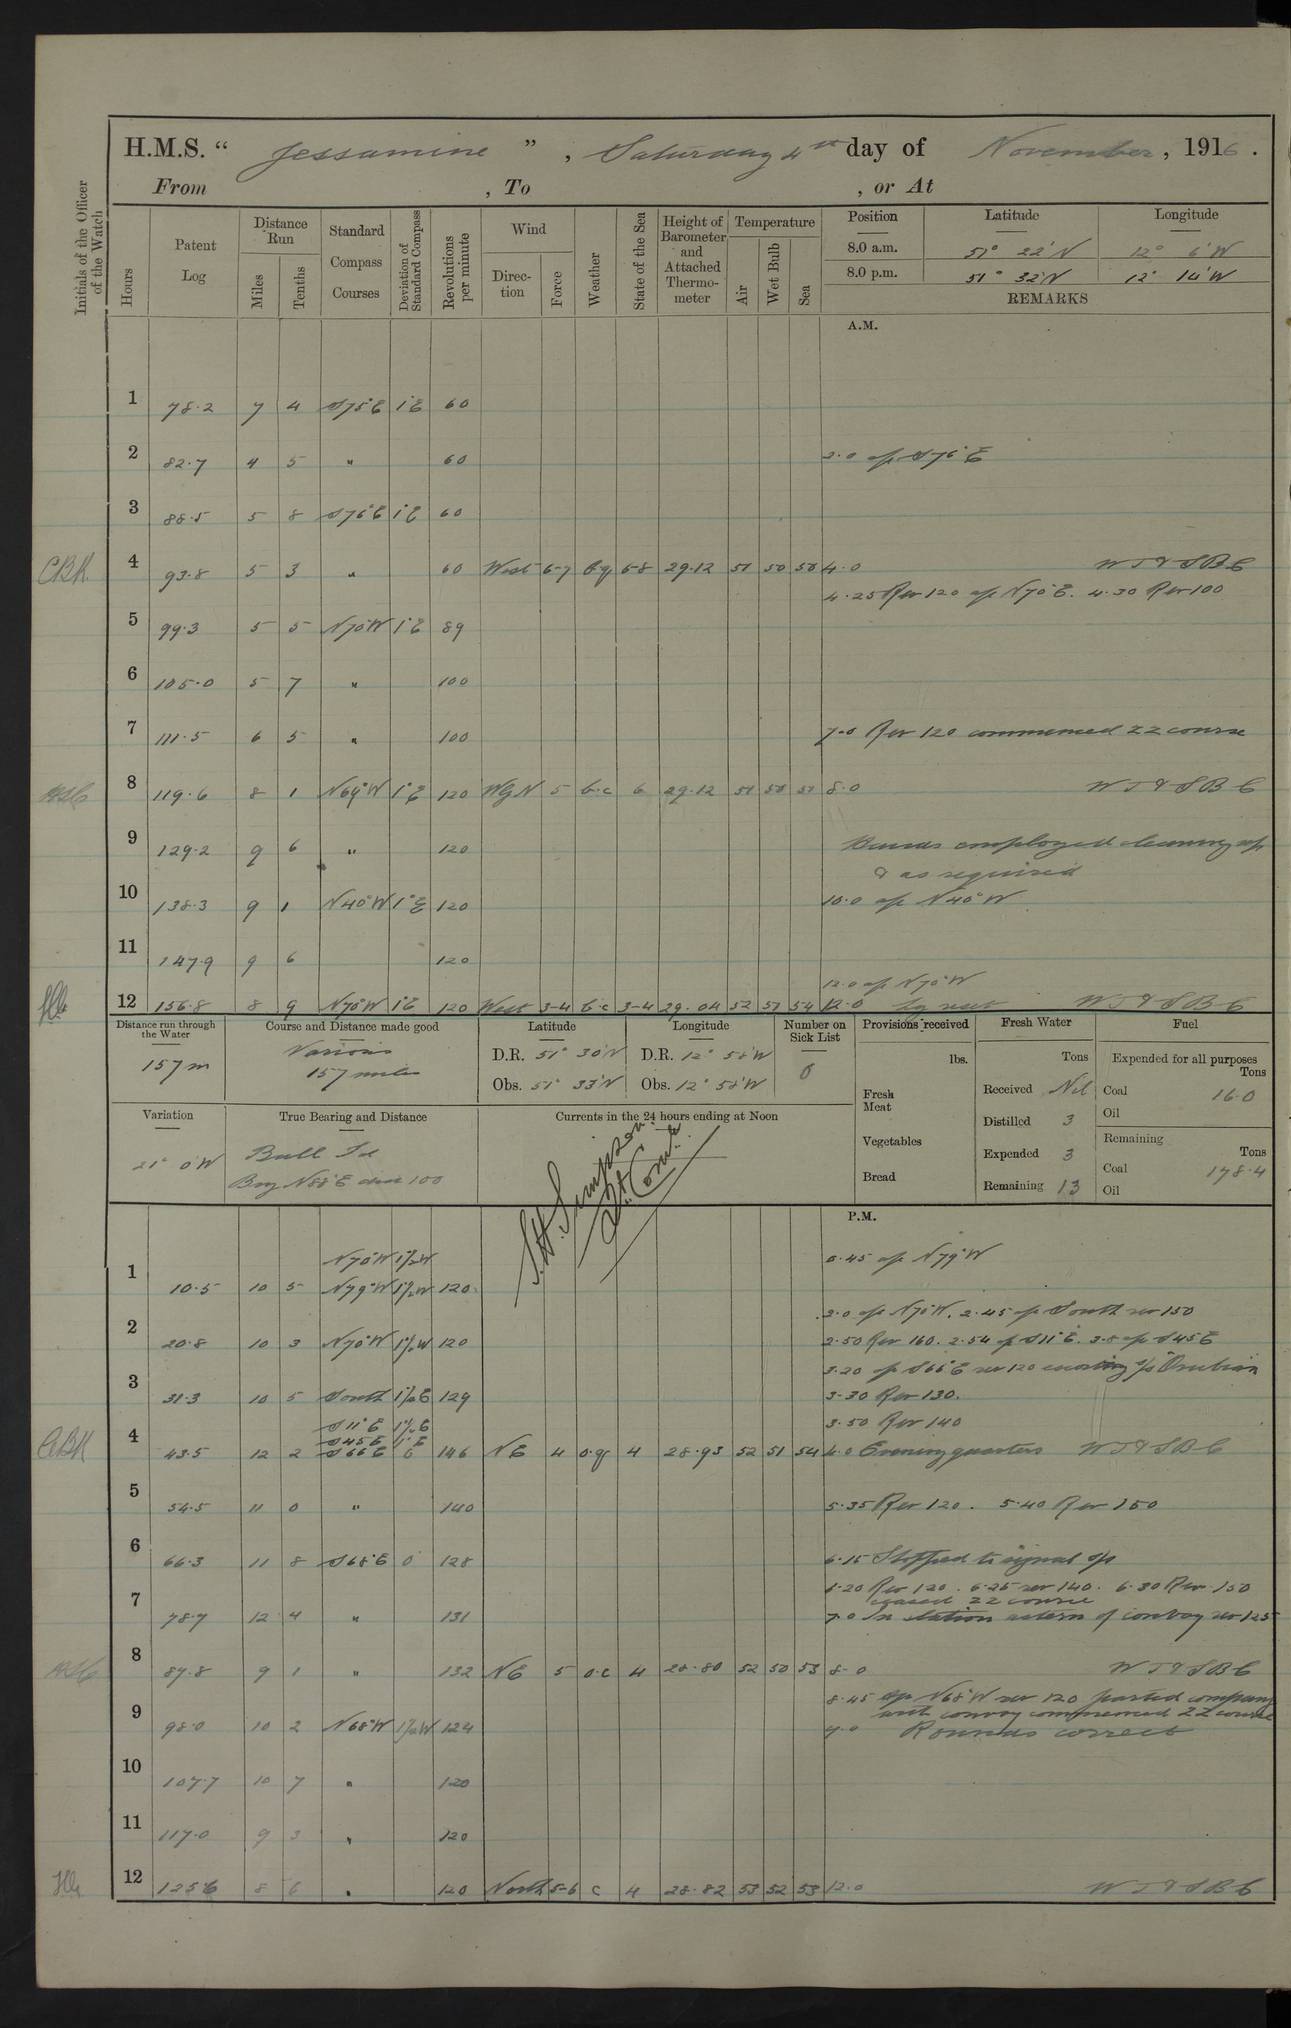 H.M.S. “ Jessamine ” , Saturday 4th day of November, 1916.
From , To , or At
Initials of the Officer of the Watch
Hours Patent Log Distance Run Miles Tenths Standard Compass Courses Deviation of Standard Compass Revolutions per minute Wind Direction Force Weather State of the Sea Height of Barometer and Attached Thermometer Temperature Air Wet Bulb Sea Position Latitude Longitude
8.0 a.m. 51° 22'N 12° 6'W
8.0 p.m. 51° 32'N 12° 14'W
REMARKS
A.M.
1 78.2 7 4 S75°E 1°E 60
2 82.7 4 5 " 60 2.0 a/c S76°E
3 88.5 5 8 S76°E 1°E 60
CBK. 4 93.8 5 3 " 60 West 6-7 6-8 29.12 51 50 50 4.0 W T & S B C
4.25 Rev 120 a/c N70°E. 4.30 Rev 100
5 99.3 5 5 N70°W 1°E 89
6 105.0 5 7 " 100
7 111.5 6 5 " 100 7.0 Rev 120 commenced ZZ course
8 119.6 8 1 N64°W 1°E 120 WByN 5 b.c 6 29.12 51 50 51 8.0 W T & S B C
9 129.2 9 6 " 120 Hands employed cleaning up
& as required
10 138.3 9 1 N40°W 1°E 120 10.0 a/c N40°W
11 147.9 9 6 120
12.0 a/c N70°W
12 156.8 8 9 N70°W 1°E 120 West 3-4 b.c 3-4 29.04 52 51 54 12.0 W T & S B C
Distance run through the Water Course and Distance made good Latitude Longitude Number on Sick List Provisions received Fresh Water Fuel
157 m Various 157 miles D.R. 51° 30'N D.R. 12° 58'W 0 lbs. Tons Expended for all purposes Tons
Obs. 51° 33'N Obs. 12° 58'W Fresh Meat Received Nil Coal 16.0
Distilled 3 Oil
Variation True Bearing and Distance Currents in the 24 hours ending at Noon
Vegetables Expended 3 Remaining Tons
21° 0'W Bull Id Brg N88°E dist 100 Bread Remaining 13 Coal 178.4
Oil
S.H. Simpson
Lt. Comr.
P.M.
N70°W 1½W 0.45 a/c N79°W
1 10.5 10 5 N79°W 1½W 120
2.0 a/c N70°W. 2.45 a/c South rev 150
2 20.8 10 3 N70°W 1½W 120 2.50 Rev 160. 2.54 a/c S11°E. 3.8 a/c S45E
3.20 a/c S66°E rev 120 escorting s/s
3 31.3 10 5 South 1½E 129 3.30 Rev 130.
S11°E 1½E 3.50 Rev 140
S45E 1°E
4 43.5 12 2 S66E 0 146 NE 4 4 28.93 52 51 54 4.0 Evening quarters W T & S B C
5 54.5 11 0 " 140 5.35 Rev 120. 5.40 Rev 150
6 66.3 11 8 S68°E 0 128 6.15 Stopped to signal s/s
6.20 Rev 120. 6.25 rev 140. 6.30 Rev 150
ceased ZZ course
7 78.7 12 4 " 131 7.0 In station astern of convoy rev 125
8 87.8 9 1 " 132 NE 5 o.c 4 28.80 52 50 53 8.0 W T & S B C
8.45 a/c N68°W rev 120 parted company
with convoy commenced ZZ course
9 98.0 10 2 N68°W 1½W 124 9.0 Rounds correct
10 107.7 10 7 " 120
11 117.0 9 3 " 120
12 125.6 8 6 " 120 North 5-6 c 4 28.82 53 52 53 12.0 W T & S B C